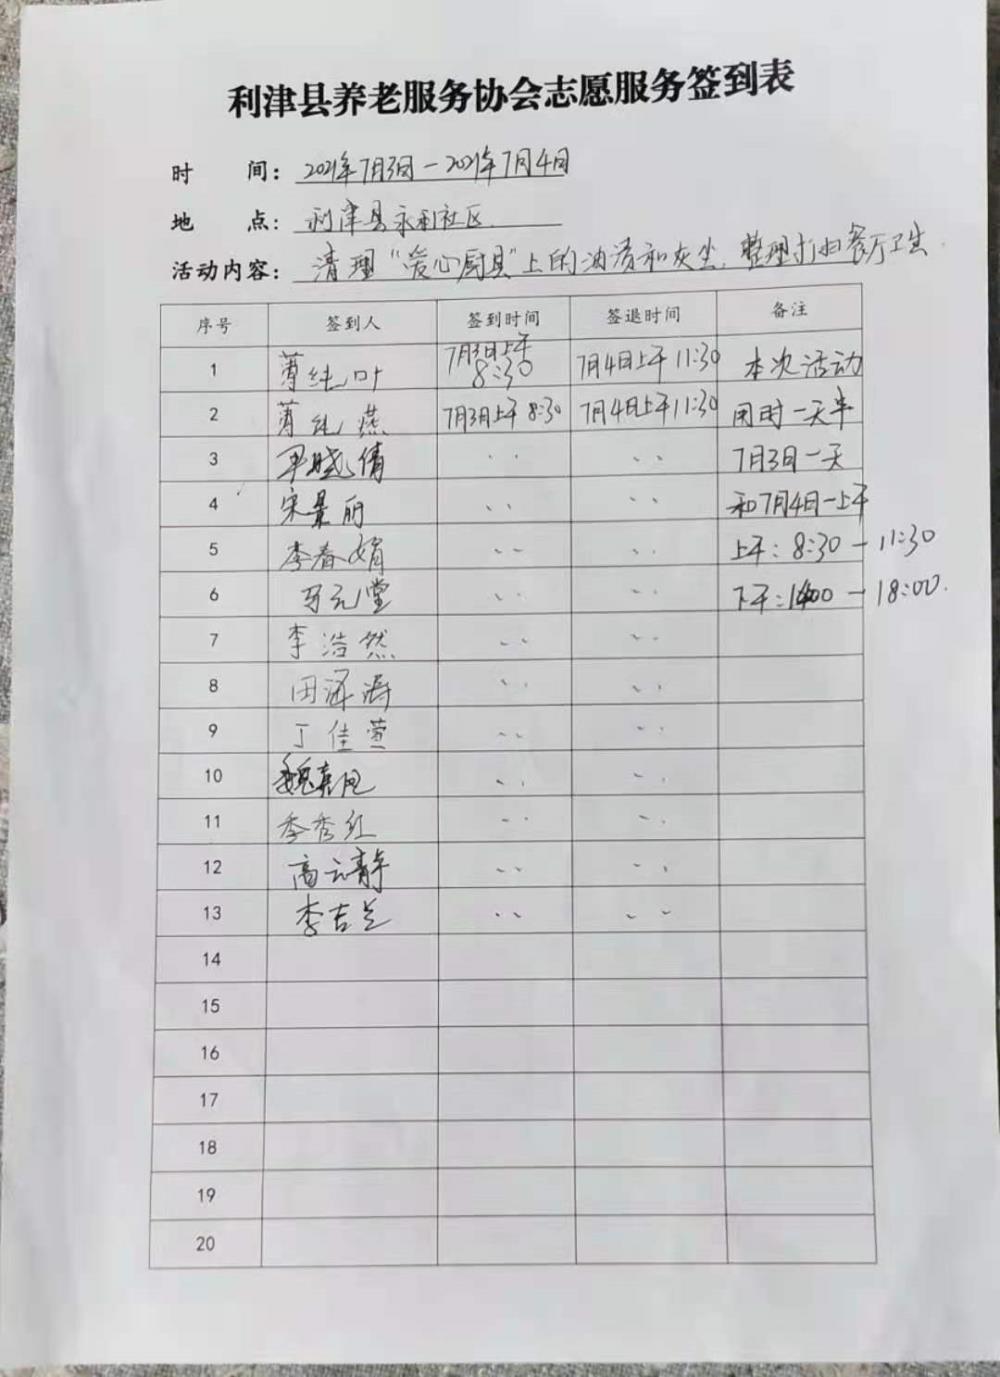 利津县养老服务协会志愿服务签到表
时 间: 2021年7月3日-2021年7月4日
地 点: 利津县永利社区
活动内容: 清理"爱心厨具"上的油渍和灰尘,整理打扫餐厅卫生.
序号 签到人 签到时间 签退时间 备注
1 薄纯叶 7月3日上午8:30 7月4日上午11:30 本次活动
2 薄纯燕 7月3日上午8:30 7月4日上午11:30 用时一天半
3 晓倩 〃 〃 7月3日一天
4 宋景丽 〃 〃 和7月4日一上午
5 李春娟 〃 〃 上午:8:30-11:30
6 元堂 〃 〃 下午:1400-18:00.
7 李浩然 〃 〃
8 田泽涛 〃 〃
9 丁佳萱 〃 〃
10 魏嘉 〃 〃
11 季秀红 〃 〃
12 高云静 〃 〃
13 李吉兰 〃 〃
14
15
16
17
18
19
20